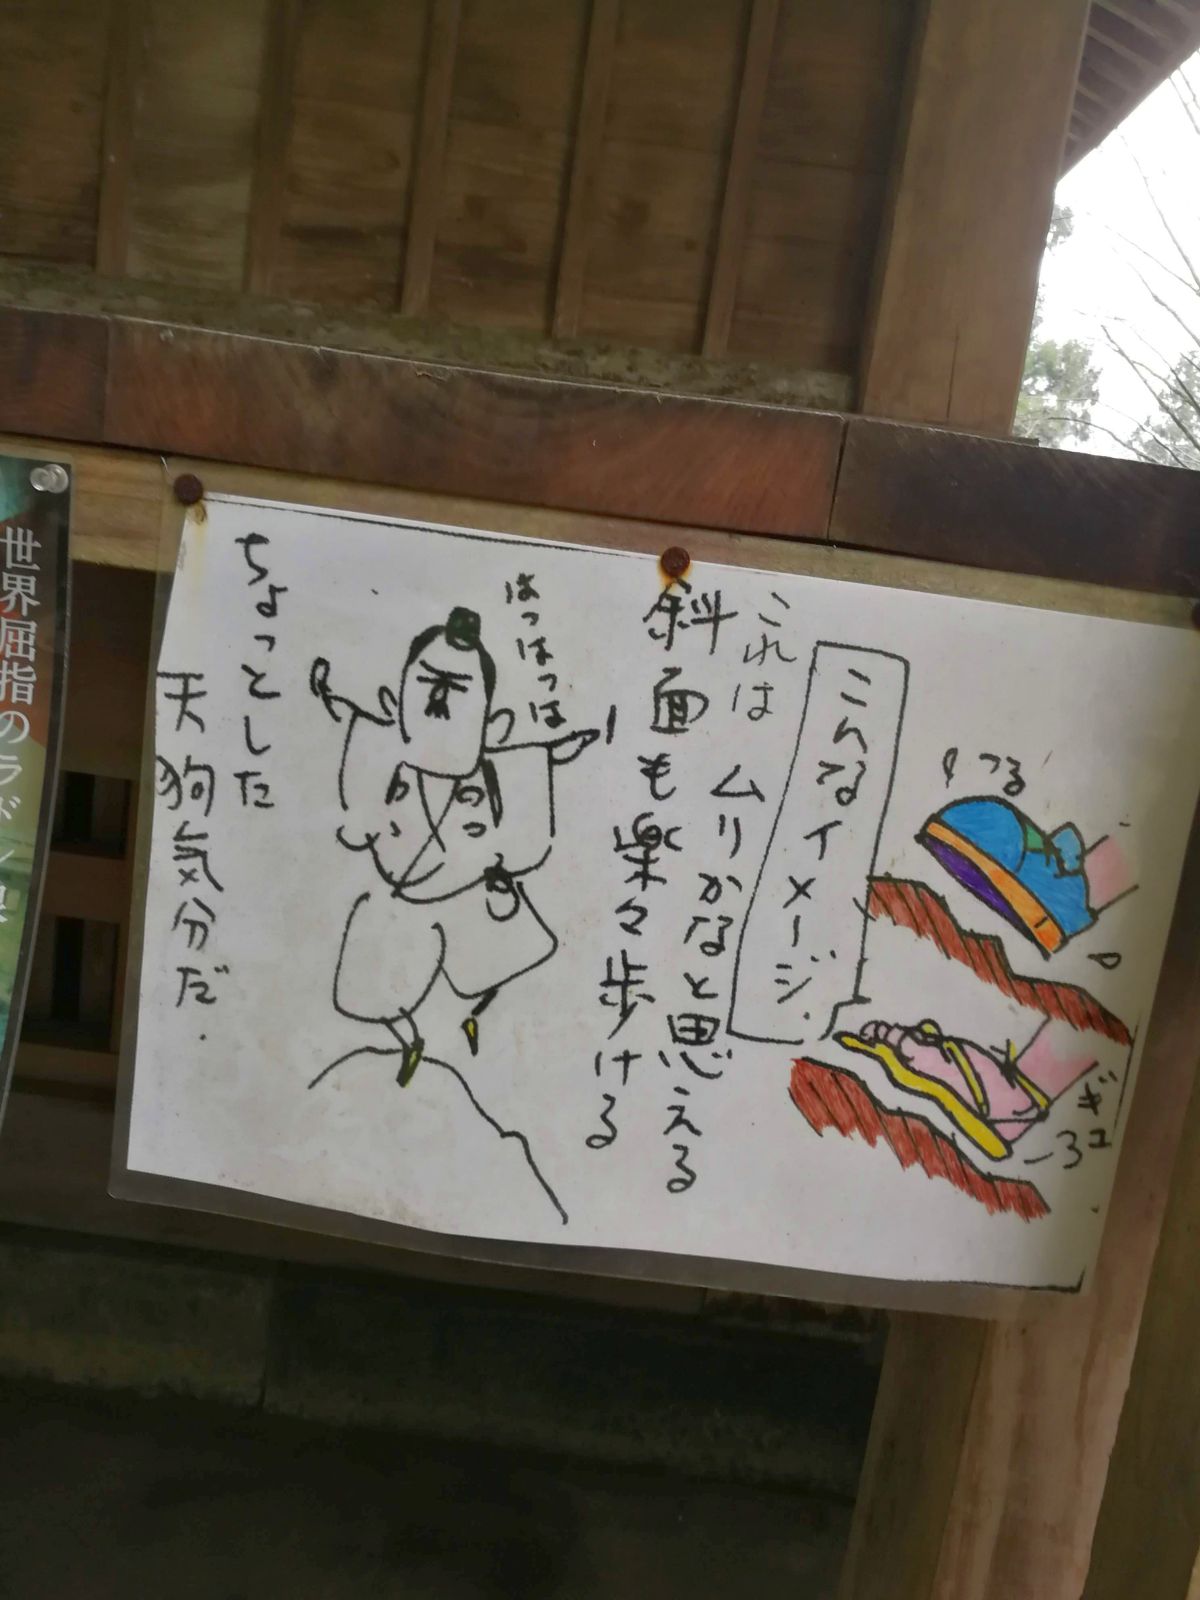 つる
ギュー
こんなイメージ.
これは ムリかなと思える
斜面も楽々歩ける
はっはっは
ちょっとした
天狗気分だ.
世界屈指のラドン